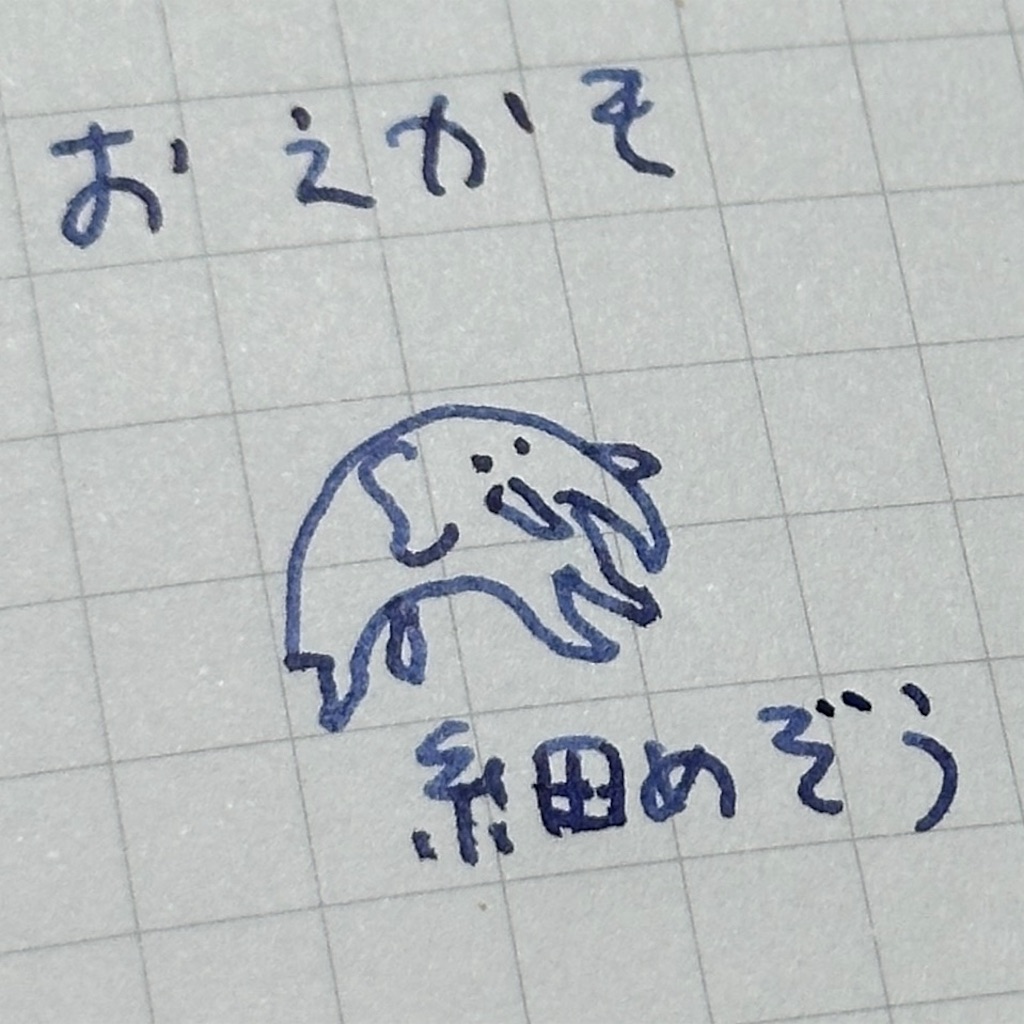 おえかき
細めぞう